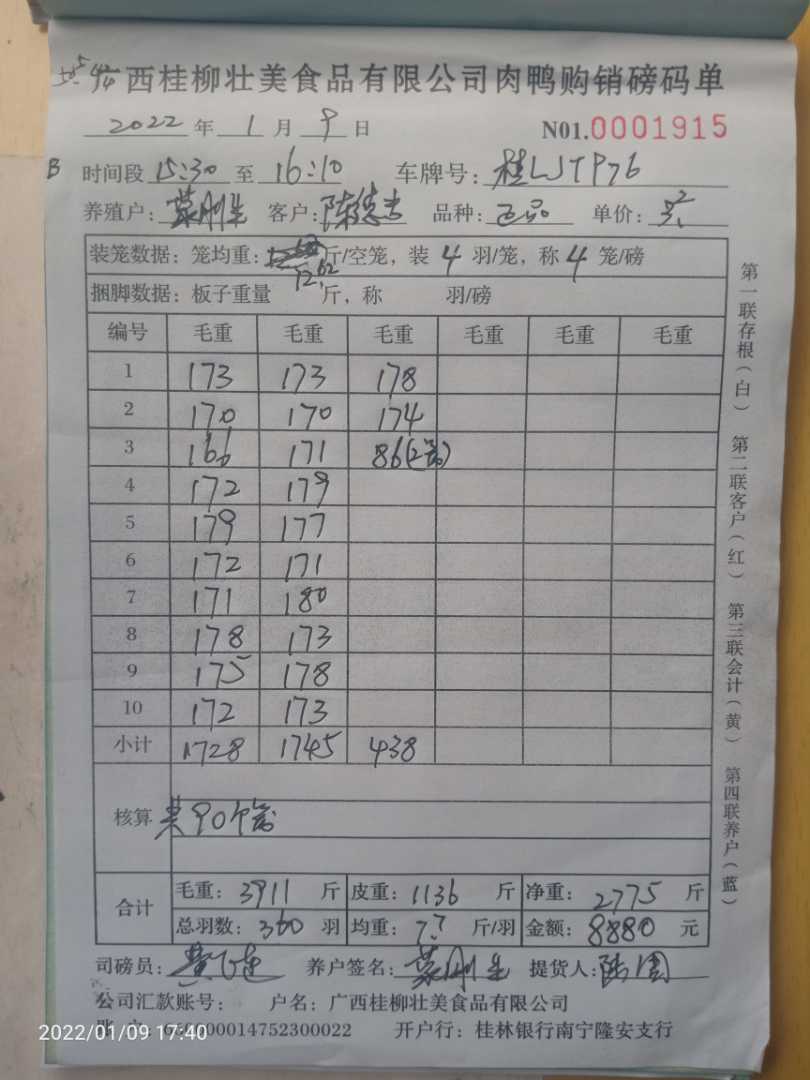 广西桂柳壮美食品有限公司肉鸭购销磅码单
2022 年 1 月 9 日 N01.0001915
B 时间段 15:30 至 16:10 车牌号: 桂LJTP76
养殖户: 客户: 品种: 正品 单价:
装笼数据: 笼均重: 12.62 斤/空笼, 装 4 羽/笼, 称 4 笼/磅
捆脚数据: 板子重量 斤, 称 羽/磅
编号 毛重 毛重 毛重 毛重 毛重 毛重
1 173 173 178
2 170 170 174
3 166 171 86(2笼)
4 172 179
5 179 177
6 172 171
7 171 180
8 178 173
9 175 178
10 172 173
小计 1728 1745 438
核算 共90个笼
合计 毛重: 3911 斤 皮重: 1136 斤 净重: 2775 斤
总羽数: 360 羽 均重: 7.7 斤/羽 金额: 8880 元
司磅员: 养户签名: 提货人:
公司汇款账号: 户名: 广西桂柳壮美食品有限公司
开户行: 桂林银行南宁隆安支行
2022/01/09 17:40
第一联存根(白) 第二联客户(红) 第三联会计(黄) 第四联养户(蓝)